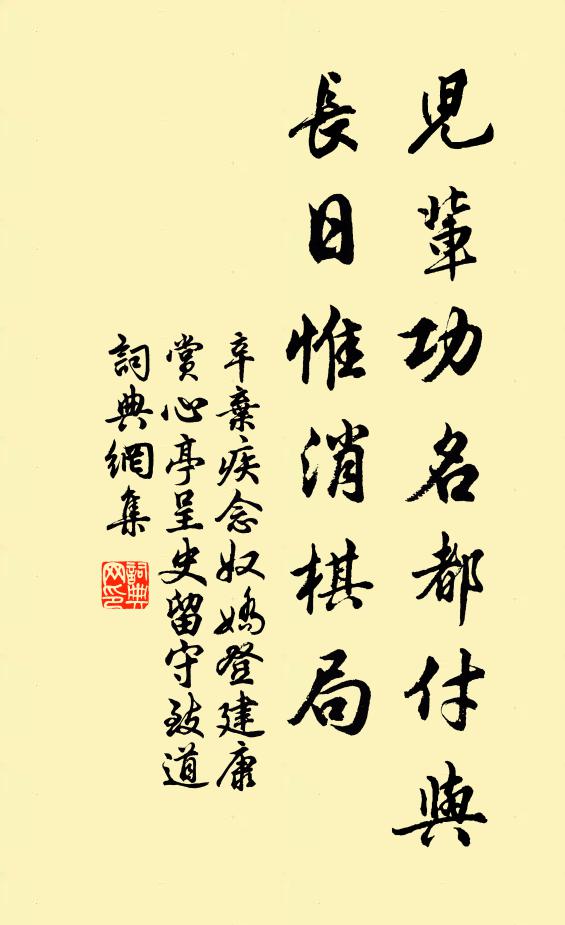 兒輩功名都付與
長日惟消棋局
辛棄疾念奴嬌登建康
賞心亭呈史留守致道
詞典網集
詞典
网印